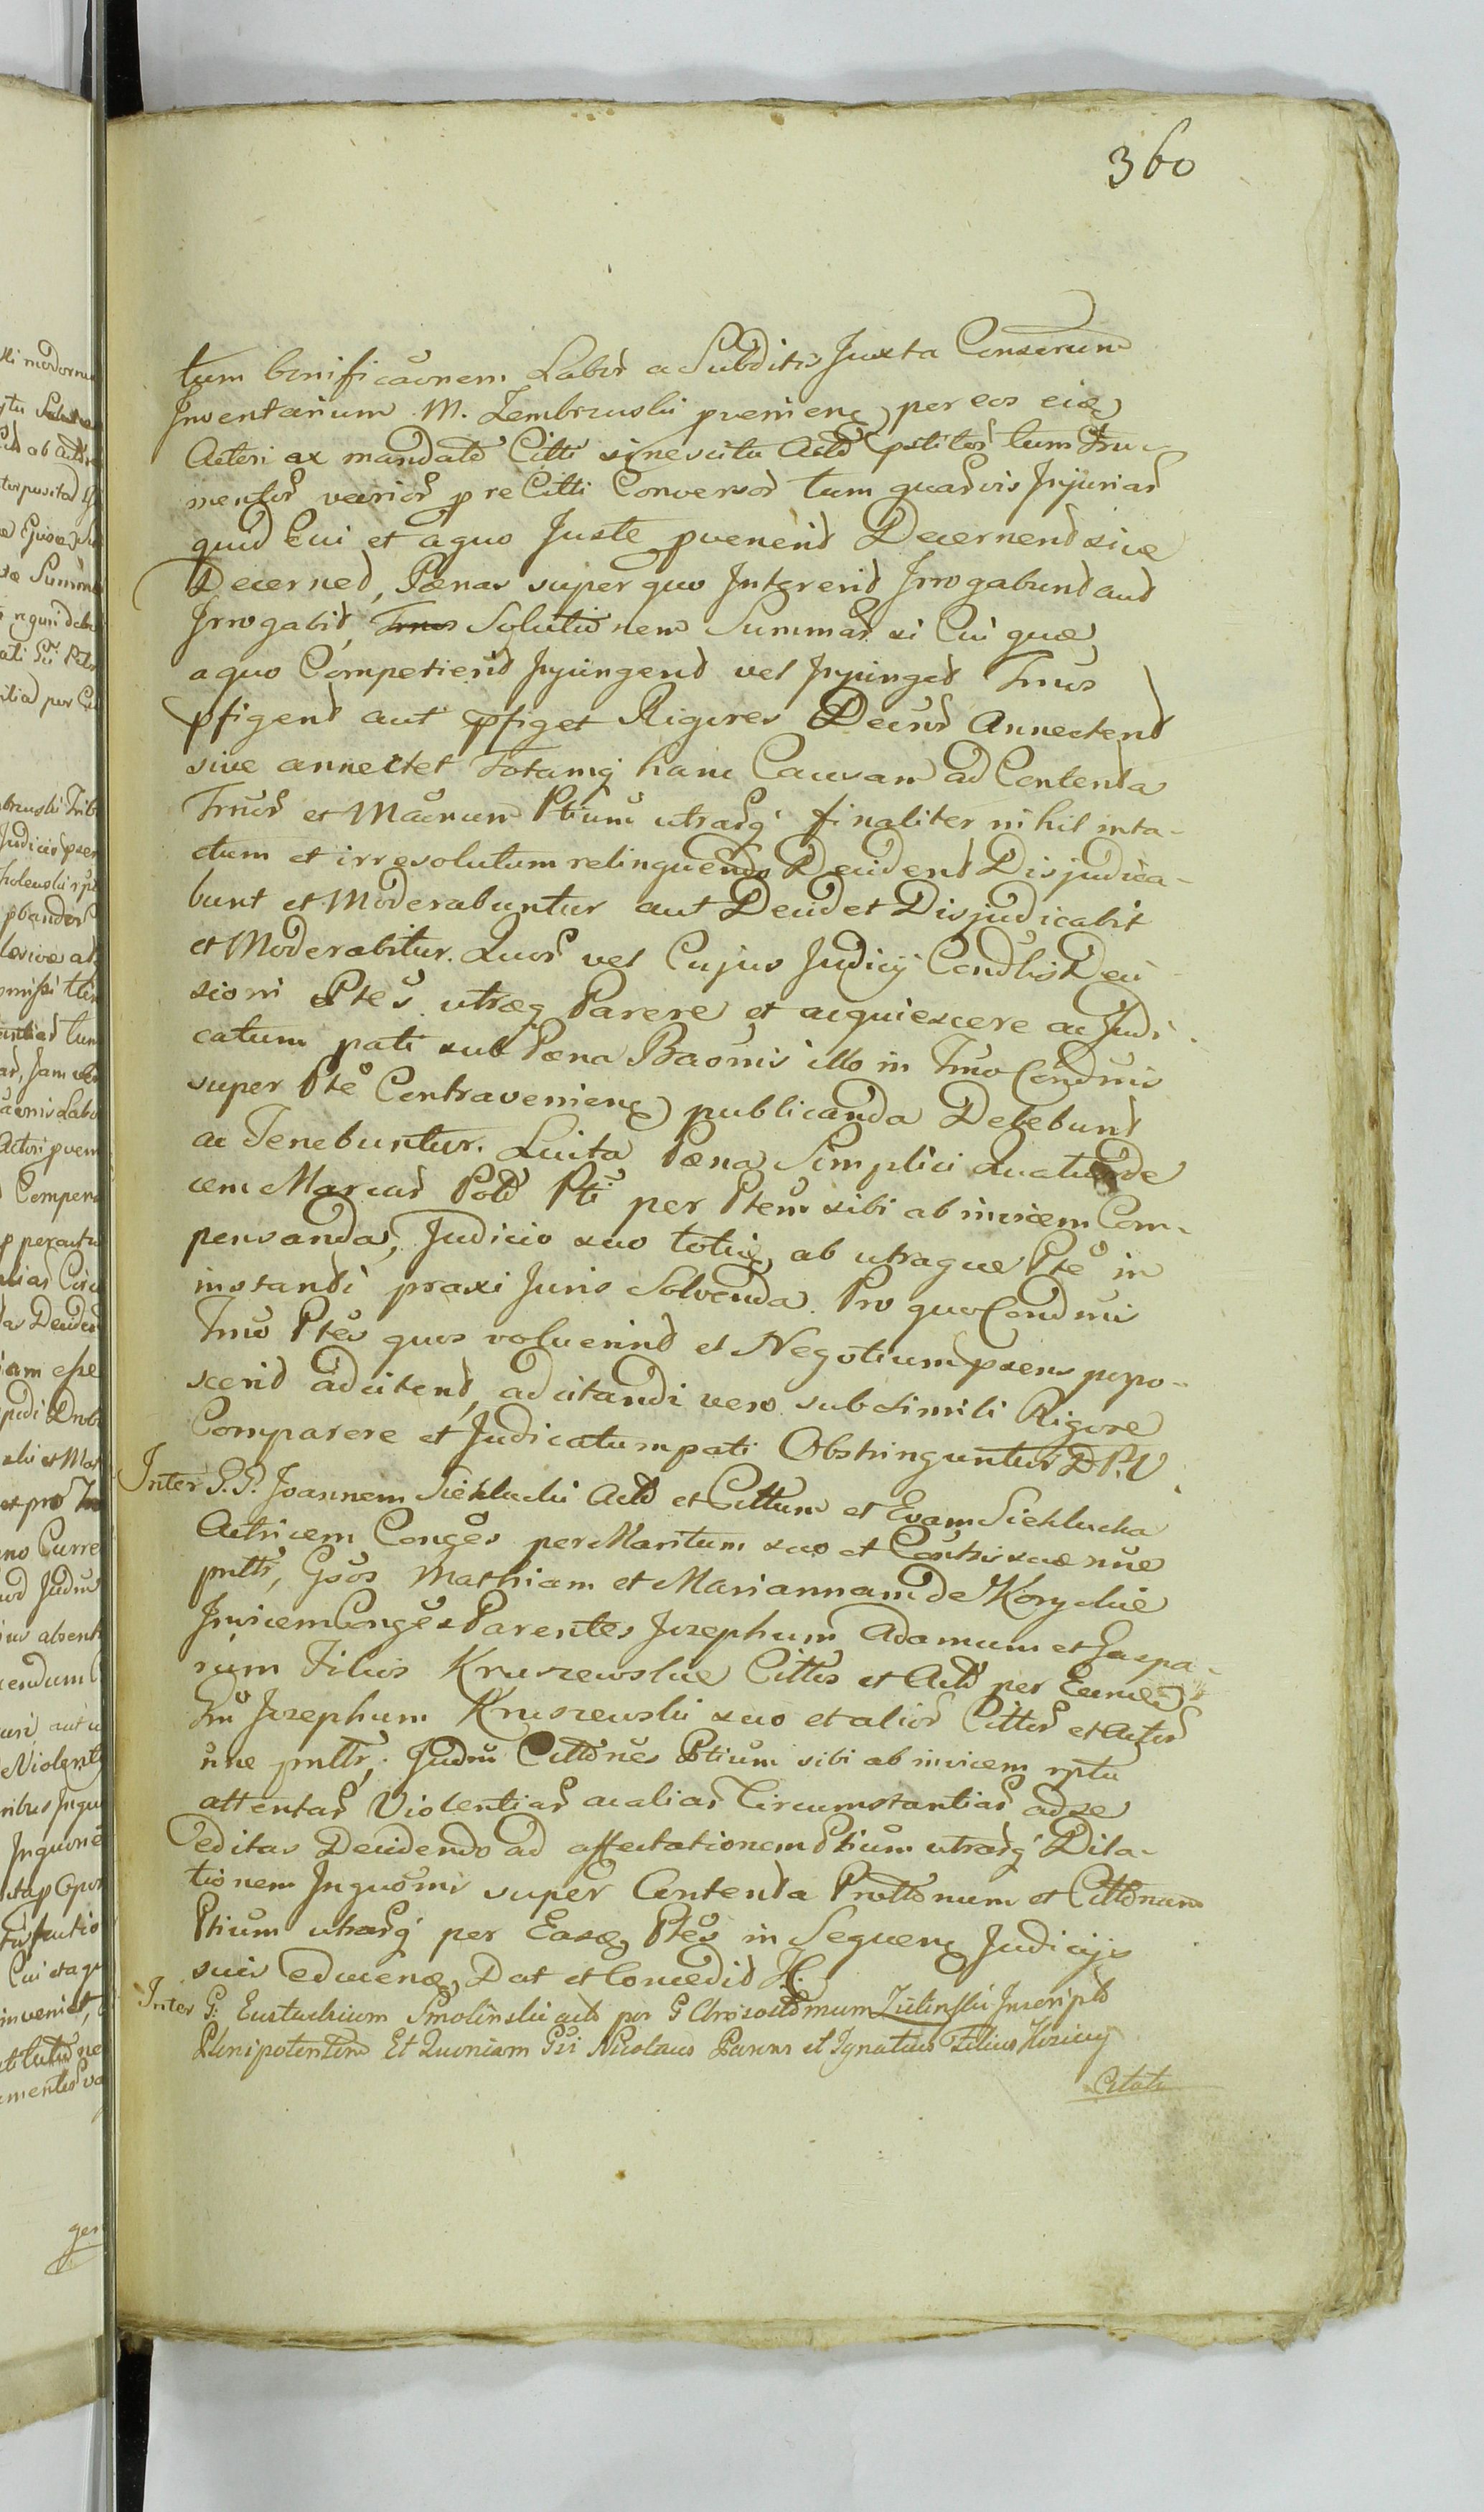 360
tum bonificaonem Labor a Subditis Juxta Conserum
Inventarium M. Zembrzuski pvenien per eos eidē
Actori ex mandato Citti sinescitu Acto pstitor tum Fru-
mentor varior p re Citti Conversor tum quasvis Injurias
quid Cui et a quo Juste pvenerit Decernend sive
Decernet, Pænas super quo Intererit Irrogabunt aut
Irrogabit, Solutionem Summar si Cui quæ
a quo Competierit Injungent vel Injunget Tmūs
pfigent aut pfiget Rigores Decūs Annectent
sive annectet Totamq hanc Causam ad Contenta
Tmūs et Mūnum Ptium utrarq finaliter nihil inta-
ctum et irresolutum relinquendo Decident Disjudica-
bunt et Moderabuntur aut Decidet Disjudicabit
et Moderabitur. Quor vel Cujus Judicij Condlis Deci
sioni Ptes utræq Parere et acquiescere ac Judi
catum pati sub Pæna Baōnis illo in Tmo Conduis
super Pte Contravenien publicanda Debebunt
ac Tenebuntur. Luita Pæna Simplici Quatuorde
cem Marcar Poll Pti per Ptem sibi ab invicem Com-
pensanda, Judicio suo toties ab utraque Pte in
instanti praxi Juris Solvenda. Pro quo Condnis
Tmo Ptes quos voluerint et Negotium psens popo-
scerit adcitent, adcitandi vero sub simili Rigore
Comparere et Judicatum pati Obstringuntur D P. V
Inter G. G. Joannem Sieklucki Acto et Cittum et Evam Sieklucka
Actricem Conges per Maritum suo et Conthsis suæ nūe
pntte, Gsos Mathiam et Mariannam de Koryckie
Invicem Conges Parentes Josephum Adamum et Gaspa-
rum Filios Kruszewskie Cittos et Acto per Eumdē
Gnū Josephum Kruszewski suo et alior Cittor et Actor
nūe pnttr, Judm Cittones Ptium sibi ab invicem rptu
attentar Violentiar ac alias Circumstantiar ad se
editas Decidendo ad affectationem Ptium utrarq Dila-
tionem Inquōnis super Contenta Prottonum et Cittonum
Ptium utrarq per Easdē Ptes in Sequen Judicijs
suis educenæ, Dat et Concedit H.
Inter G: Eustachium Smolinski acto per G Chrisostomum Zielinski Inscripto
Plenipotentem Et Quoniam Gsi Nicolaus Parens et Ignatius Filius
Citati